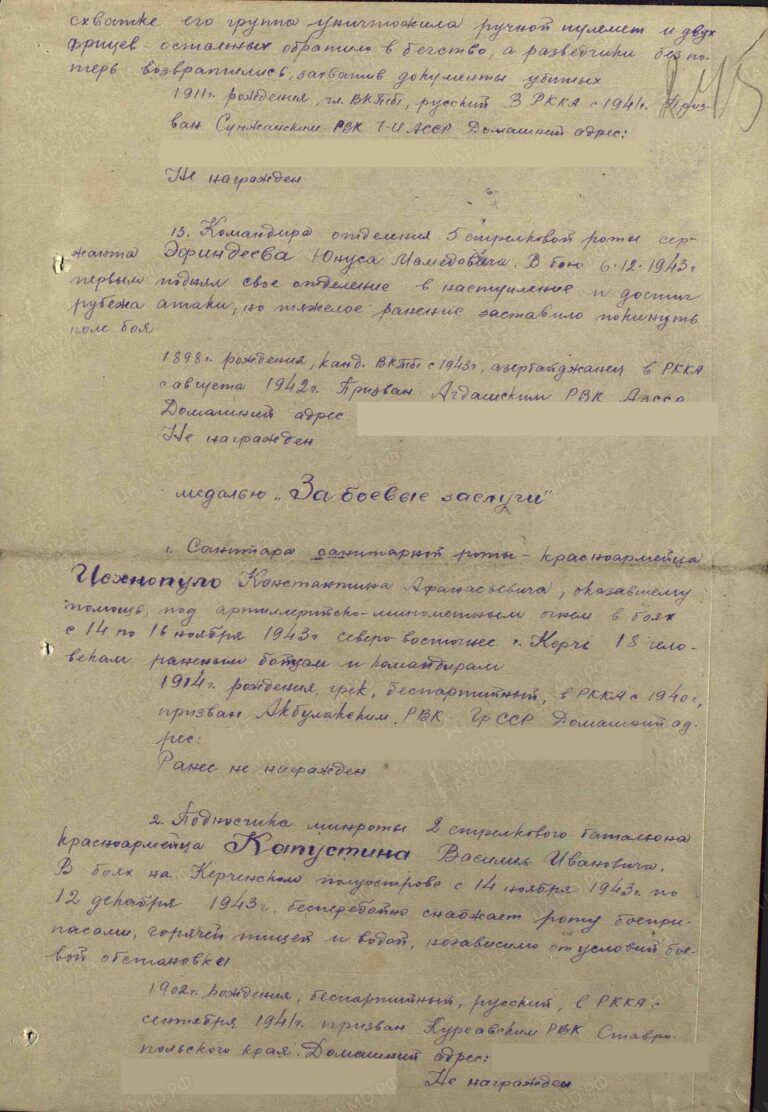 схватке его группа уничтожила ручной пулемет и двух
фрицев - остальных обратило в бегство, а разведчики без по-
терь возвратились, захватив документы убитых
1911г. рождения, чл. ВКПб, русский В РККА с 1941г. Приз-
ван Сунженским РВК Ч-И АССР Домашний адрес:
Не награжден
13. Командира отделения 5 стрелковой роты сер-
жанта Эфиндеева Юнуса Мамедовича. В бою 6.12.1943г
первым поднял свое отделение в наступление и достиг
рубежа атаки, но тяжелое ранение заставило покинуть
поле боя
1898г. рождения, канд. ВКПб с 1943г, азербайджанец в РККА
с августа 1942г. Призван Агдашским РВК АзССР
Домашний адрес:
Не награжден
медалью „За боевые заслуги"
1. Санитара санитарной роты - красноармейца
Исхнопуло Константина Афанасьевича, оказавшему
помощь, под артиллерийско-минометным огнем в боях
с 14 по 16 ноября 1943г северо восточнее г. Керчь 18 чело-
векам раненым бойцам и командирам
1914г. рождения, грек, беспартийный, в РККА с 1940г,
призван РВК ГрССР Домашний ад-
рес:
Ранее не награжден
2. Подносчика минроты 2 стрелкового батальона
красноармейца Капустина Василия Ивановича.
В боях на Керченском полуострове с 14 ноября 1943г. по
12 декабря 1943г. бесперебойно снабжает роту боепри-
пасами, горячей пищей и водой, независимо от условий бое-
вой обстановки
1902г. рождения, беспартийный, русский, в РККА с
сентября 1941г. призван Курсавским РВК Ставро-
польского края. Домашний адрес:
Не награжден